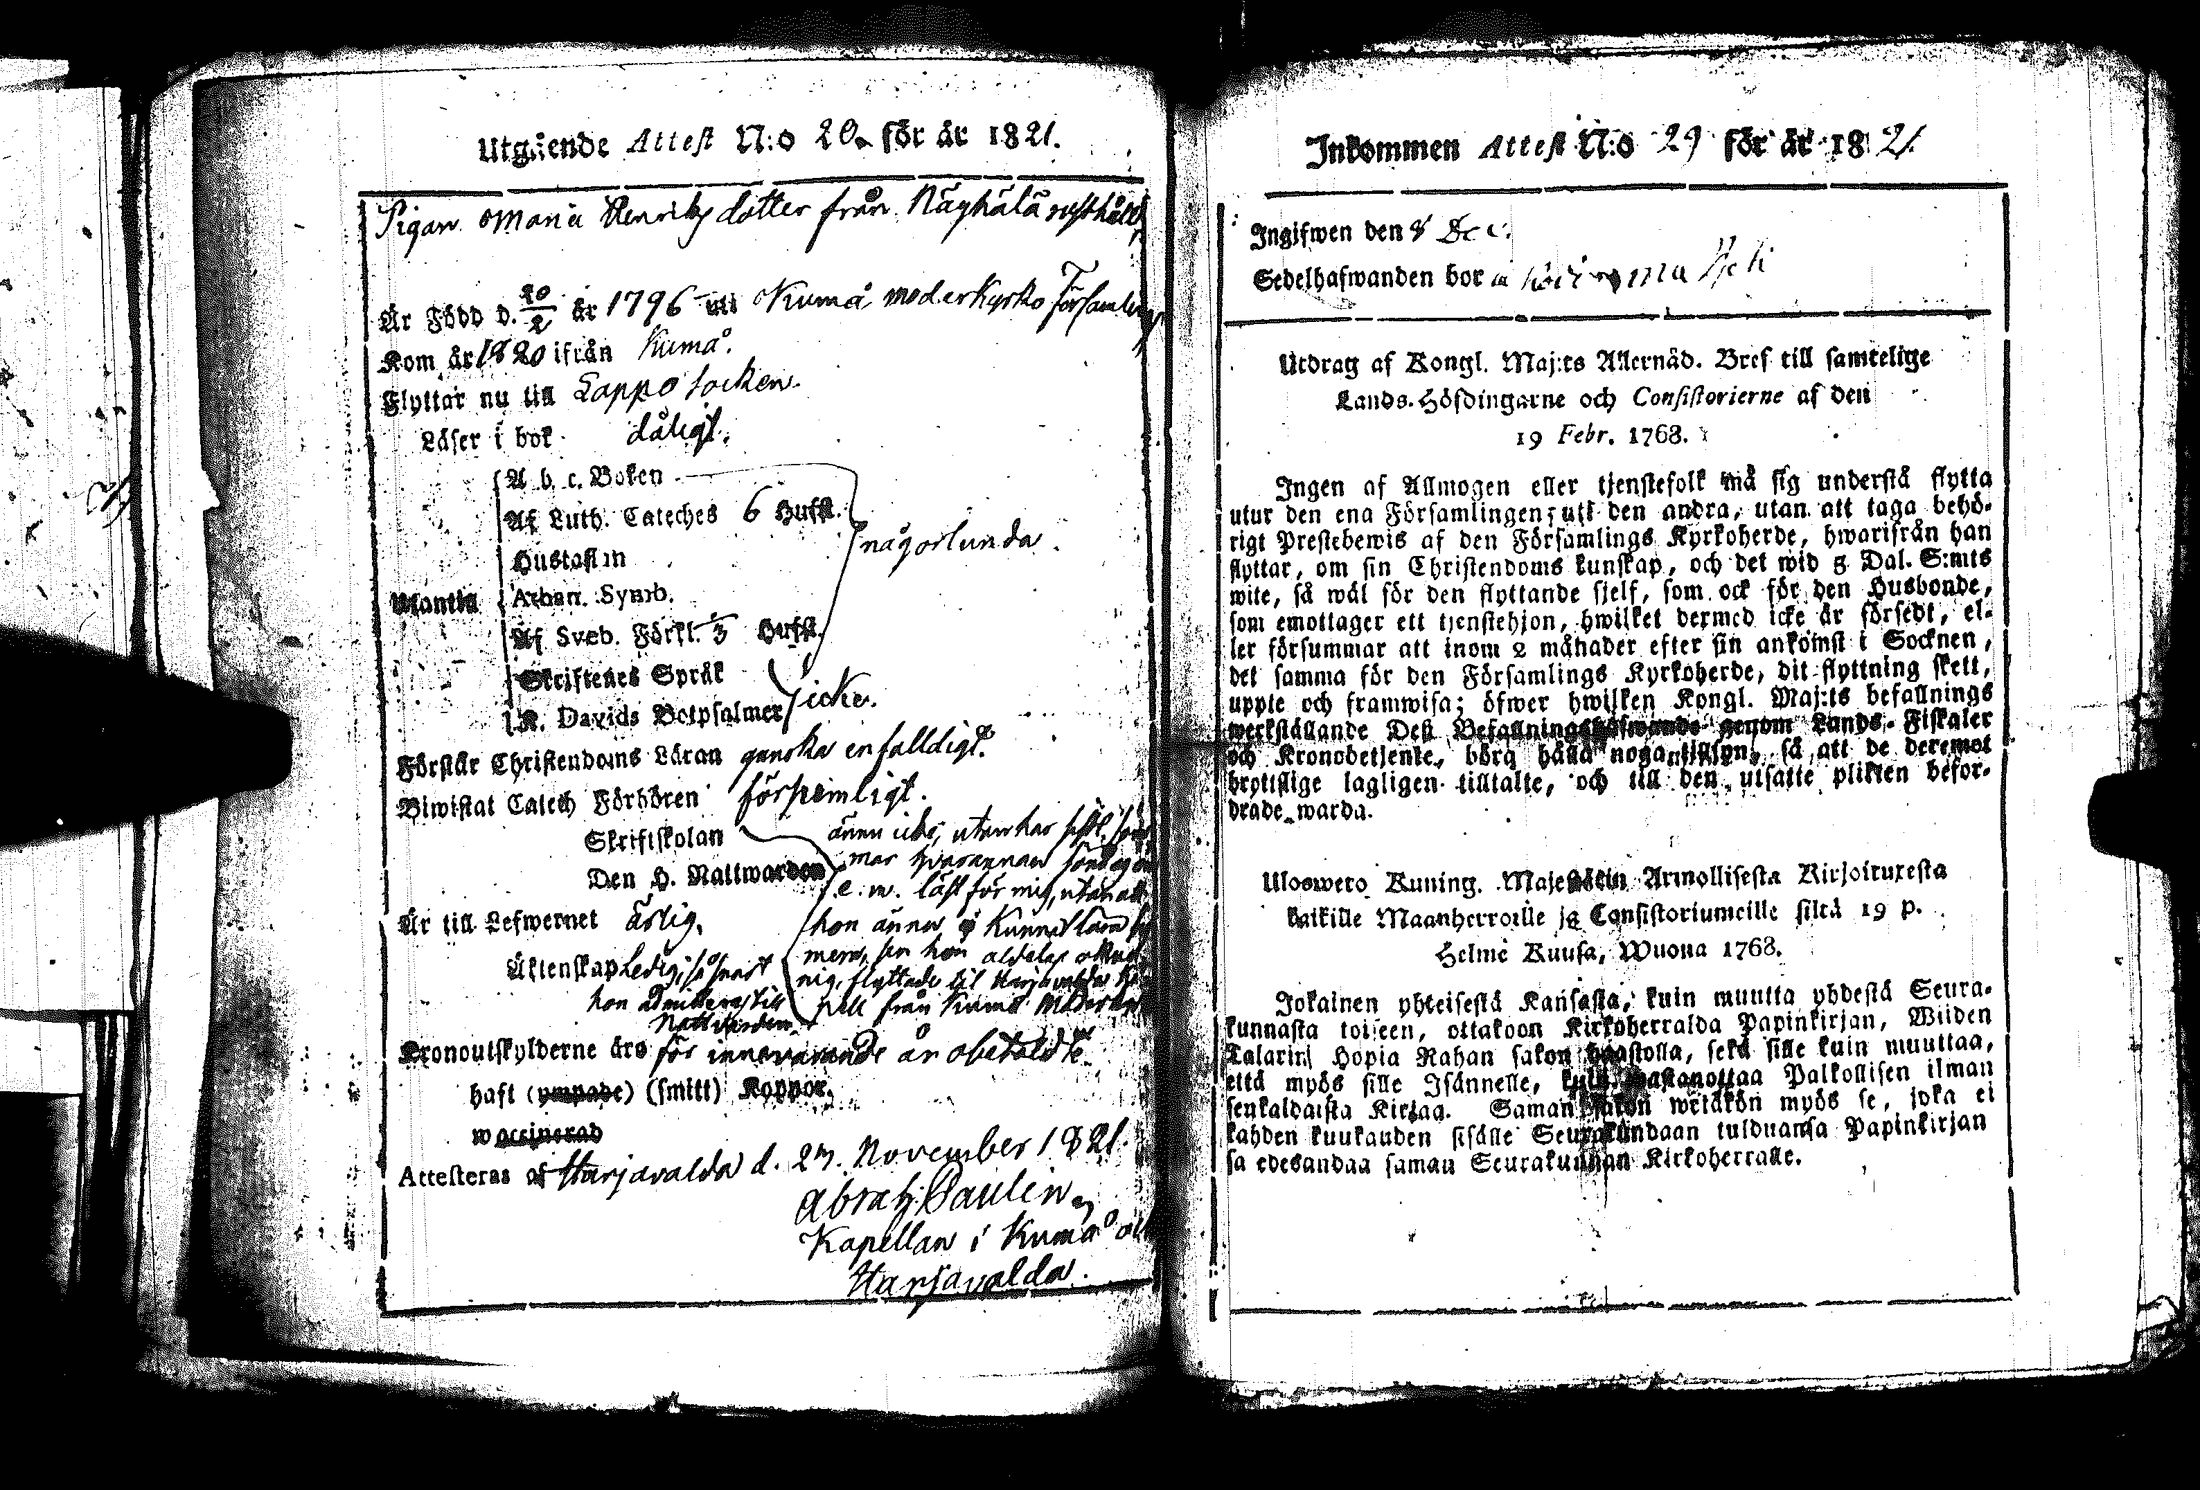 Utgående Attest N:o 20. för år 1821.
Pigan Maria Henriksdotter från Näyhälä rusthåll
Är Född d. 20/2 år 1796 uti Kumå moderkyrko Församling
Kom år 1820 ifrån Kumå.
Flyttar nu till Lappo socken.
Läser i bok dåligt.
A b c. Boken
Af Luth. Cateches 6 Hufst.
någorlunda.
Hustaflan
Utantil Athan. Symb.
Af Sveb. Förkl. 3 Hufst.
Skriftenes Språk
icke.
K. Davids Botpsalmer
Förstår Christendoms Läran ganska enfalldigt.
Biwistat Catech Förhören försumligt.
Skriftskolan ännu icke, utan har sistl. som
mar hvarannan söndag
Den H. Nattwarden e. m. läst för mig, utan att
Är till Lefwernet ärlig. hon ännu ej kunnat lära
mera, sen hon aldeles okun
Äktenskap Ledig, så snart nig, flyttade til Harjavalda Ka
hon admitteras till pell från Kumå Moderkyrk
Nattvarden.
Kronoutskylderne äro för innevarande år obetaldte.
haft (ympade) (smitt) Koppor.
waccinerad
Attesteras af Harjavalda d. 27. November 1821.
Abrah. Paulin,
Kapellan i Kumå och
Harjavalda.
Inkommen Attest N:o 29 för år 1821.
Ingifwen den 8 Dec.
Sedelhafwanden bor
Utdrag af Kongl. Maj:ts Allernåd. Bref till samtelige
Lands-Höfdingarne och Consistorierne af den
19 Febr. 1768.
Ingen af Allmogen eller tjenstefolk må sig understå flytta
utur den ena Församlingen, uti den andra, utan att taga behö-
rigt Prestebewis af den Församlings Kyrkoherde, hwarifrån han
flyttar, om sin Christendoms kunskap, och det wid 5 Dal. S:mts
wite, så wäl för den flyttande sjelf, som ock för den Husbonde,
som emottager ett tjenstehjon, hwilket dermed icke är försedt, el-
ler försummar att inom 2 månader efter sin ankomst i Socknen,
det samma för den Församlings Kyrkoherde, dit flyttning skett,
uppte och framwisa; öfwer hwilken Kongl. Maj:ts befallnings
werkställande Dess Befallningshafwande genom Lands-Fiskaler
och Kronobetjente, böra hålla noga tillsyn, så att de deremot
brottslige lagligen tilltalte, och till den utsatte plikten befor-
drade warda.
Uloswero Kuning. Majestätin Armollisesta Kirjoituxesta
kaikille Maanherroille ja Consistoriumeille siltä 19 p.
Helme Kuusa, Wuona 1768.
Jokainen yhteisestä Kansasta, kuin muutta yhdestä Seura-
kunnasta toiseen, ottakoon Kirkoherralda Papinkirjan, Wiiden
Talarin Hopia Rahan sakon haastolla, sekä sille kuin muuttaa,
että myös sille Isännelle, kuin wastanottaa Palkollisen ilman
senkaldaista Kirjaa. Saman sakon wetäkön myös se, joka ei
kahden kuukauden sisälle Seurakundaan tulduansa Papinkirjan
sa edesandaa saman Seurakunnan Kirkoherralle.